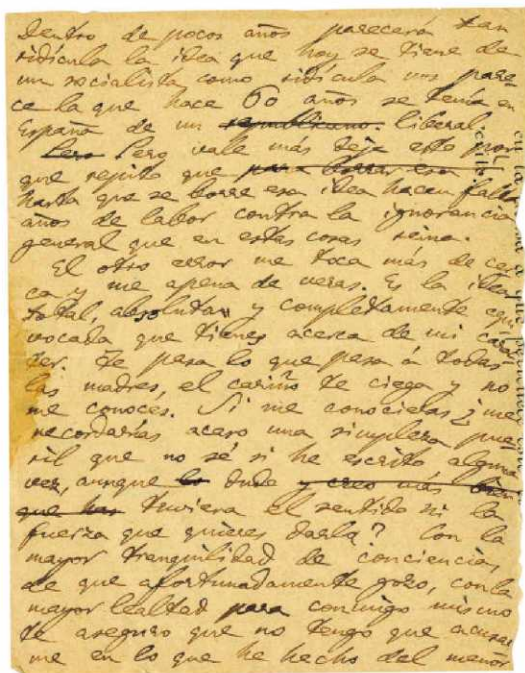 Dentro de pocos años parecerá tan
ridícula la idea que hoy se tiene de
un socialista como ridícula nos pare-
ce la que hace 60 años se tenía en
España de un republicano. liberal.
Pero Pero vale más dejar esto por
que repito que para borrar esa
hasta que se borre esa idea hacen falta
años de labor contra la ignorancia
general que en estas cosas reina.
El otro error me toca más de cer
ca y me apena de veras. Es la idea
total, absoluta y completamente equi
vocada que tienes acerca de mi carác
ter. Te pasa lo que pasa á todas
las madres, el cariño te ciega y no
me conoces. Si me conocieras ¿me
recordarías acaso una simpleza pue
ril que no sé si he escrito alguna
vez, aunque lo dudo y creo más bien
que has tuviera el sentido ni la
fuerza que quieres darla? Con la
mayor tranquilidad de conciencia,
de que afortunadamente gozo, con la
mayor lealtad para conmigo mismo
te aseguro que no tengo que acusar
me en lo que he hecho del menor